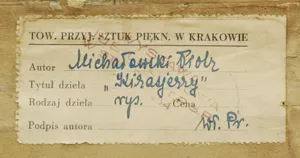 TOW. PRZYJ. SZTUK PIĘKN. W KRAKOWIE
Autor Michałowski Piotr
Tytuł dzieła „Kirasjerzy"
Rodzaj dzieła rys. Cena
Podpis autora Wł. Pr.